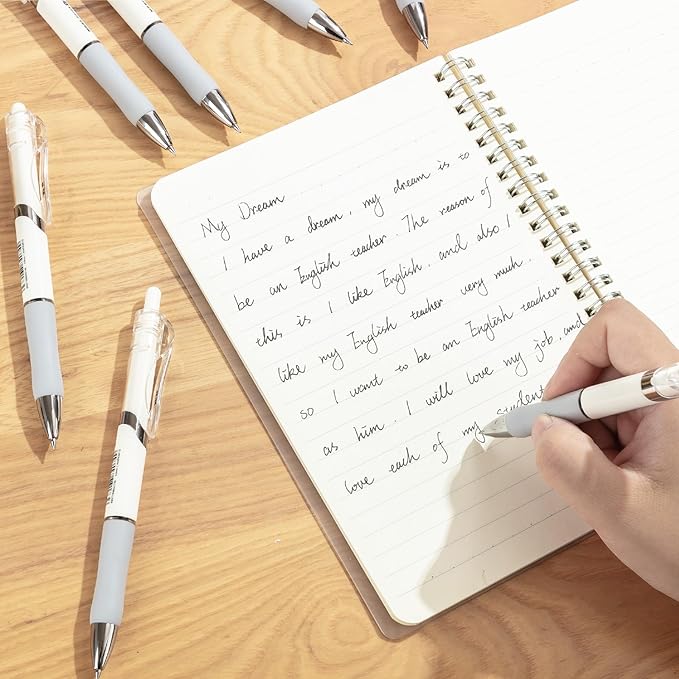 My Dream
I have a dream, my dream is to
be an English teacher. The reason of
this is I like English. and also I
like my English teacher very much.
so I want to be an English teacher
as him. I will love my job, and
love each of my student